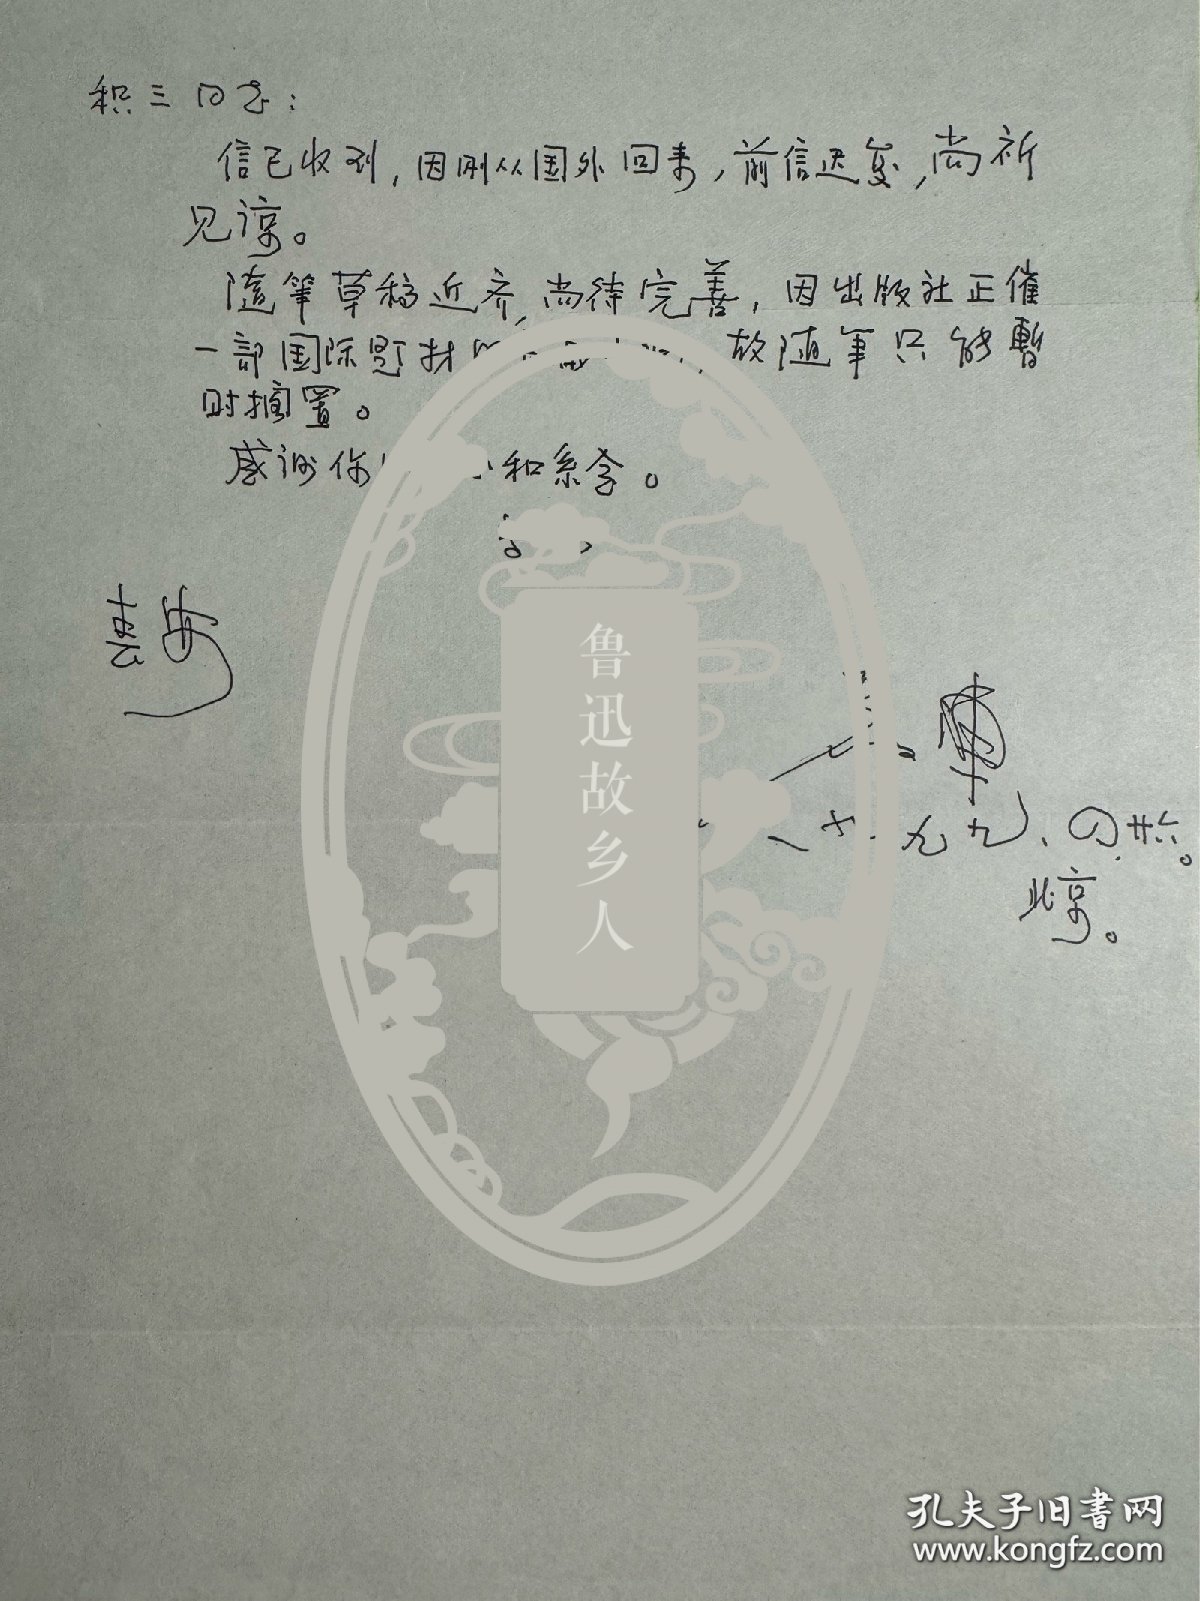 积三同志：
信已收到，因刚从国外回来，前信迟复，尚祈
见谅。
随笔草稿近齐，尚待完善，因出版社正催
一部国际题材，故随笔只能暂
时搁置。
感谢你和系念。
九九、四廿六。
北京。
鲁迅故乡人
孔夫子旧书网
www.kongfz.com